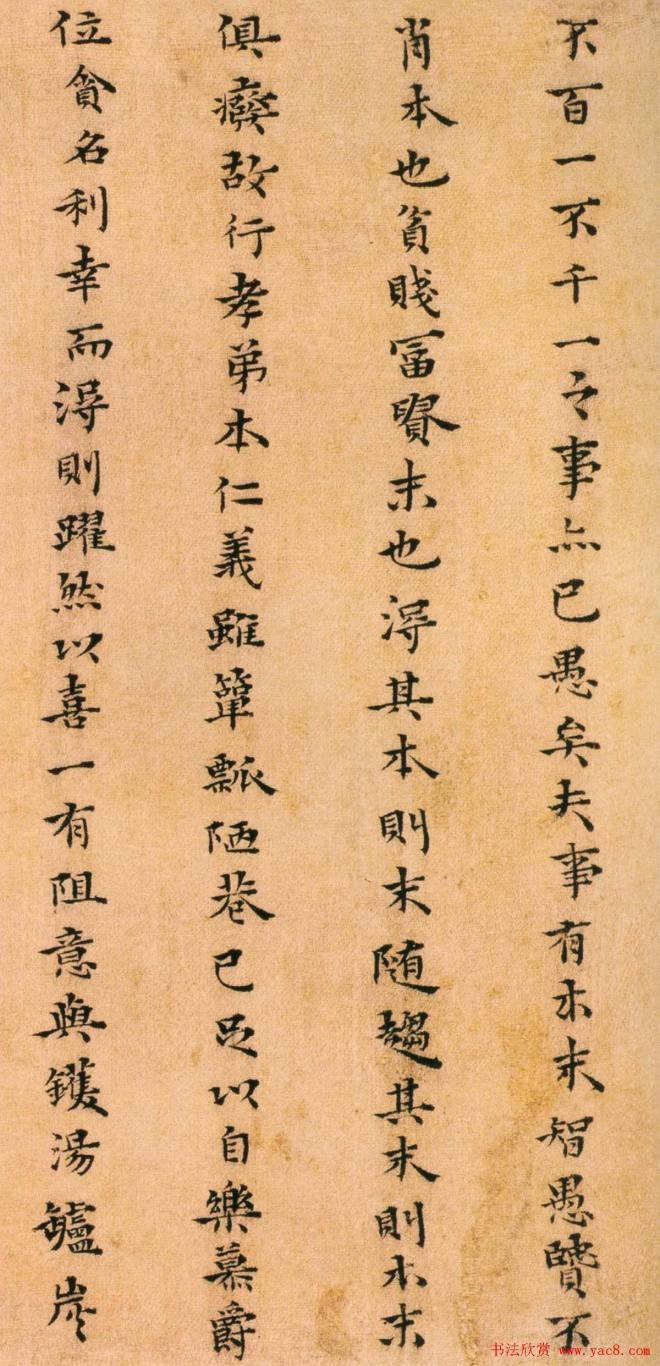 不百一不千一之事亦已愚矣夫事有本末智愚賢不
肖本也貧賤冨貴末也淂其本則末随趨其末則本末
俱癈故行孝弟本仁義雖簞瓢陋巷已足以自樂慕爵
位貪名利幸而淂則躍然以喜一有阻意與鑊湯鑪炭
书法欣赏 www.yac8.com